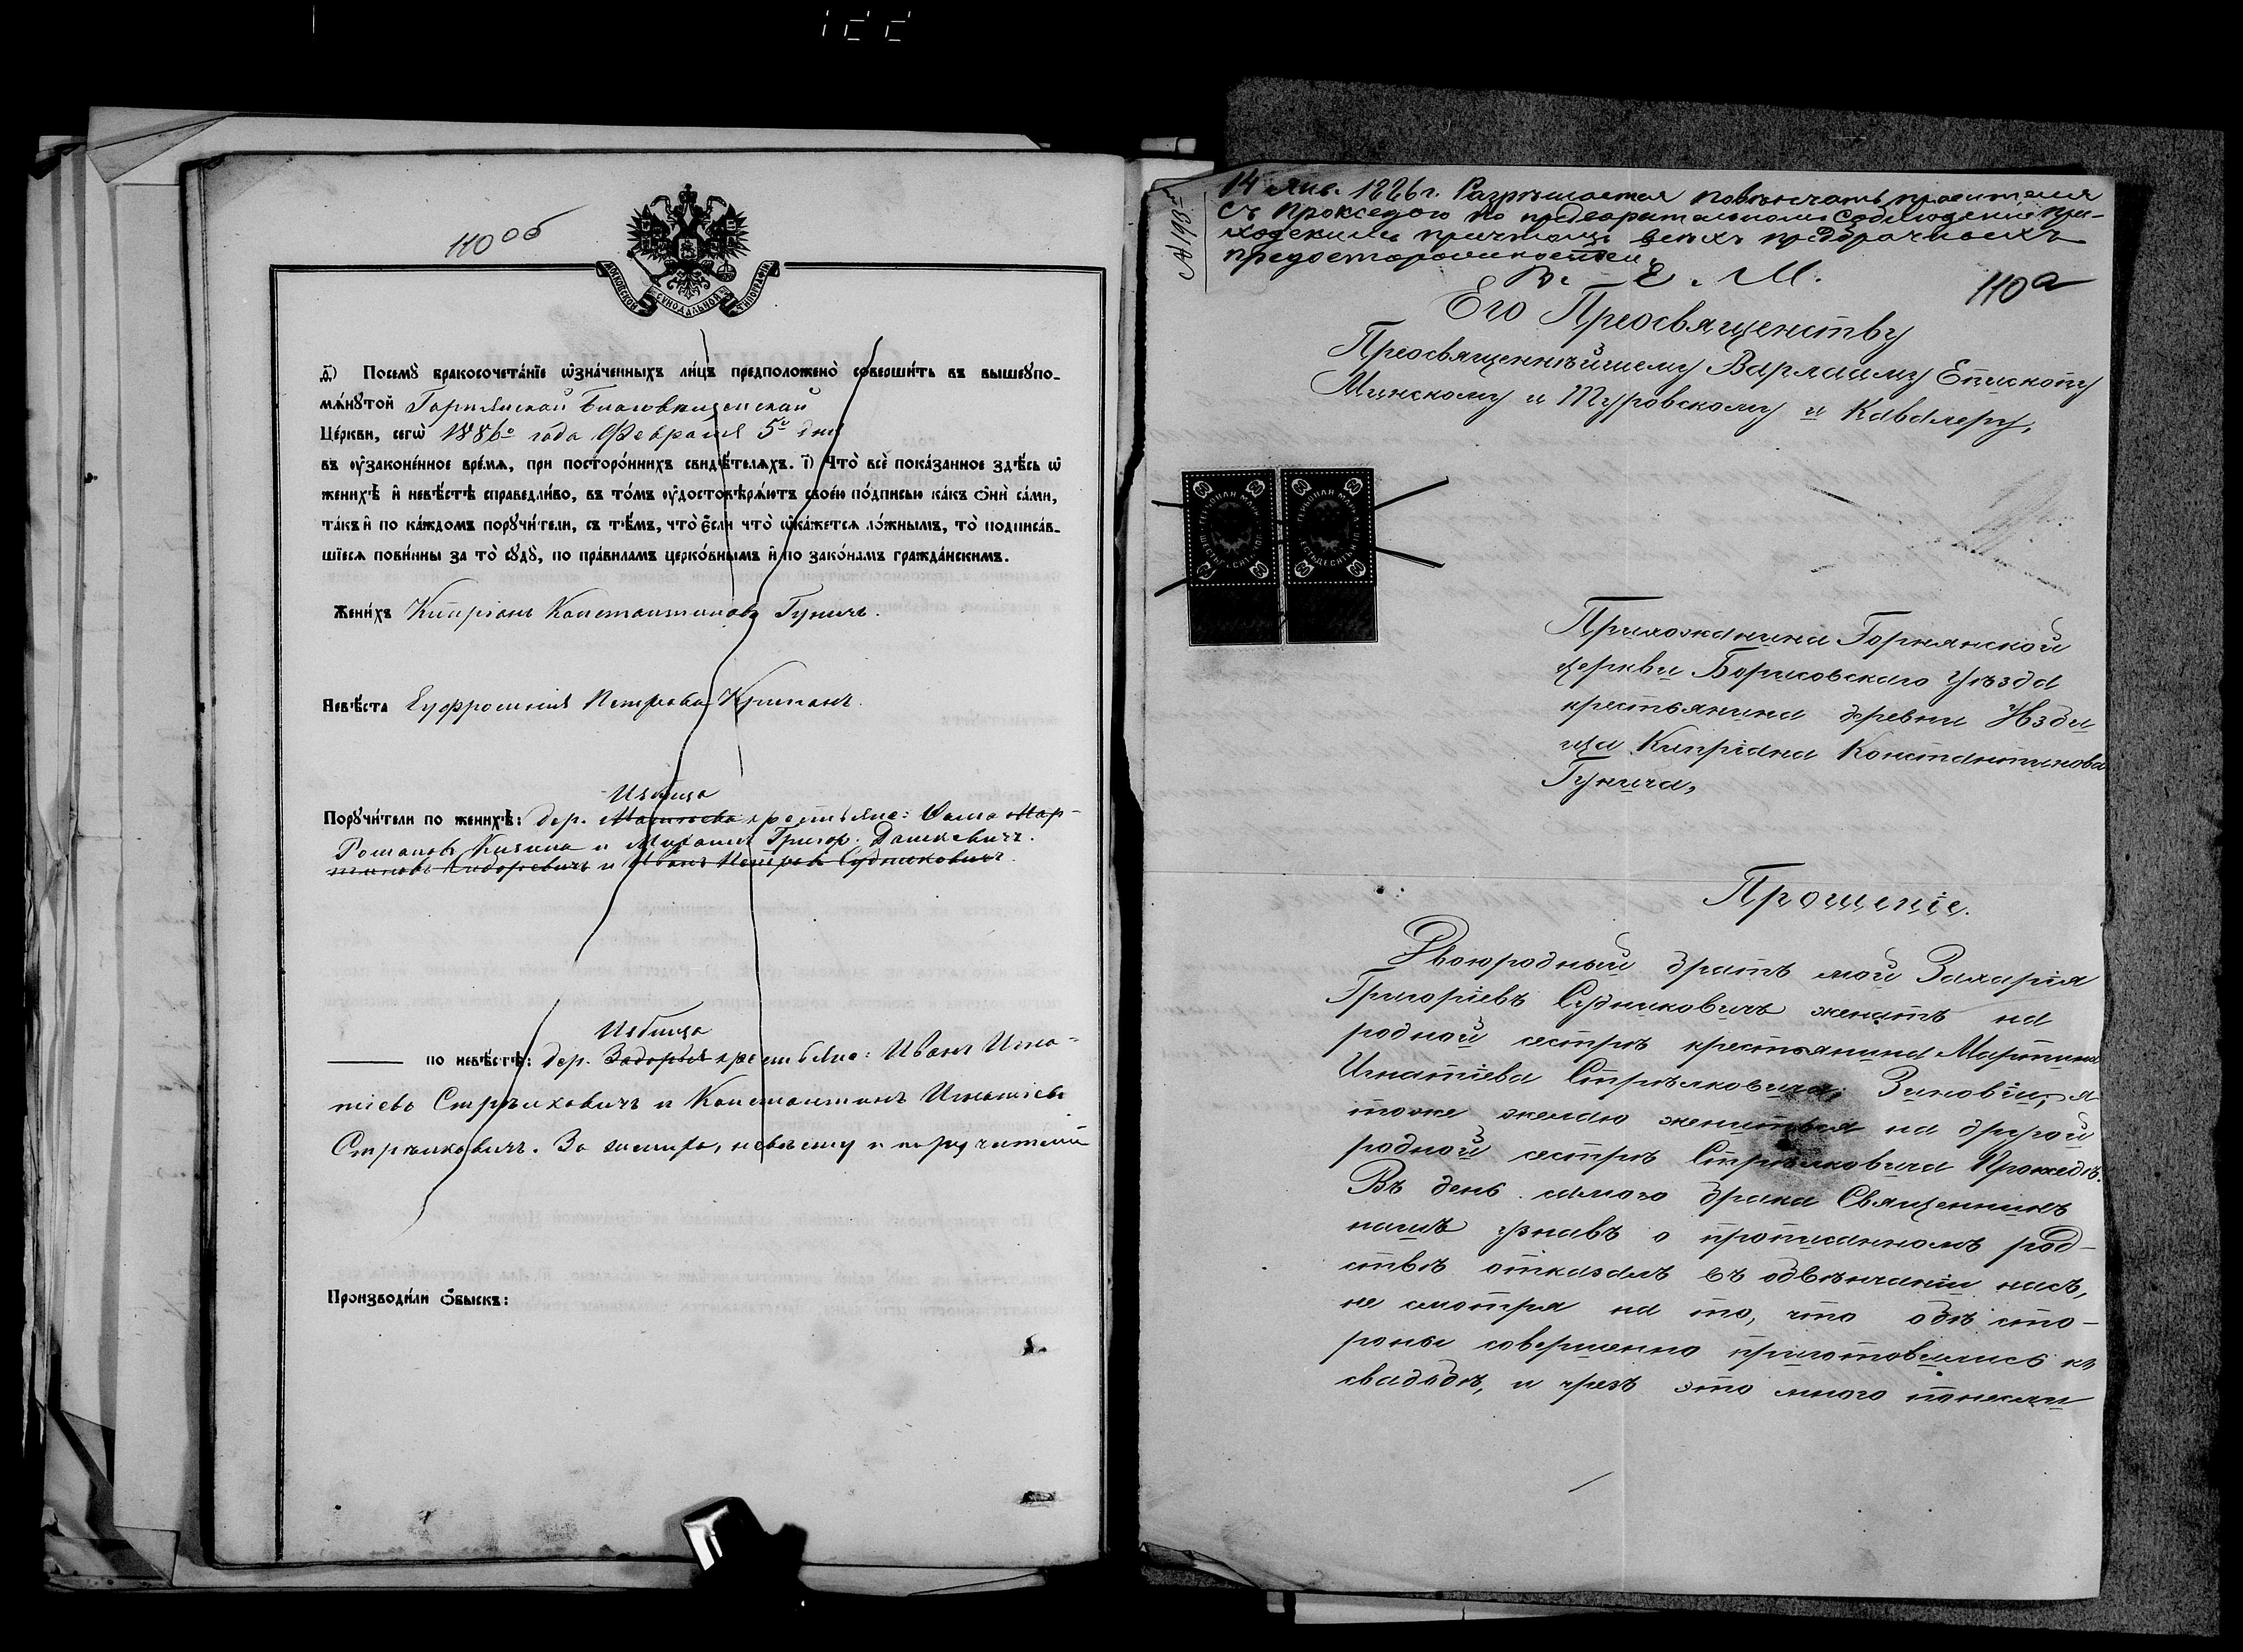 110 об
МОСКОВСКОЙ СѴНОДАЛЬНОЙ ТИПОГРАФІИ
Посемꙋ̀ бракосочета́нїе ѡ҆зна́ченныхъ ли́цъ предположено̀ соверши́ть въ вышеꙋпо-
мѧ́нꙋтой Горнянской Благовещенской
Це́ркви, сегѡ̀ 1886го го́да Февраля 5го дня
въ ᲂу҆зако́ненное вре́мѧ, при посторо́ннихъ свидѣ́телѧхъ. і҃) Что̀ всѐ пока́занное здѣ́сь ѡ҆
женихѣ̀ и҆ невѣ́стѣ справедли́во, въ то́мъ ᲂу҆достовѣрѧ́ютъ свое́ю по́дписью ка́къ ѻ҆нѝ са́ми,
та́къ и҆ по ка́ждомъ порꙋчи́тели, съ тѣ́мъ, что̀ є҆́сли что̀ ѡ҆ка́жетсѧ ло́жнымъ, то̀ подписа́в-
шїесѧ пови́нны за то̀ сꙋдꙋ̀, по пра́виламъ церко́внымъ и҆ по зако́намъ гражда́нскимъ.
Жени́хъ Кипріанъ Константиновъ Гуничъ.
Невѣ́ста Еуфросинія Петрова
Избища
Порꙋчи́тели по женихѣ̀: дер. крестьяне: Ѳома Мар-
Романовъ и Михаилъ Григор. Дашкевичъ.
и Иванъ Петровъ Судниковичъ.
Избища
по невѣ́стѣ: дер. Задорья крестьяне: Иванъ Игна-
тіевъ Стрѣлковичъ и Константинъ Игнатіевъ
Стрѣлковичъ. За жениха, невѣсту и поручителей
Производи́ли ѻ҆́быскъ:
№ 198
14 Янв. 1886 г. Разрѣшается повѣнчать просителя
съ Прокседою по предварительномъ соблюденіи при-
ходскимъ причтомъ всѣхъ предбрачныхъ
предосторожностей.
В. Е. М.
110 а
Его Преосвященству
Преосвященнѣйшему Варлааму Епископу
Минскому и Туровскому и Кавалеру,
ГЕРБОВАЯ МАРКА
60
ГЕРБОВАЯ МАРКА
60
Прихожанина Горнянской
церкви Борисовскаго Уѣзда
крестьянина древни Изби
ща Кипріана Константинова
Гунича,
Прошеніе.
Двоюродный братъ мой Захарія
Григоріевъ Судниковичъ женатъ на
родной сестрѣ крестьянина Мартина
Игнатіева Стрѣлковича, Зиновіи, я
тоже желаю жениться на другой
родной сестрѣ Стрѣлковича Прокседѣ.
Въ день самого брака Священникъ
нашъ узнавъ о прописанномъ род-
ствѣ отказалъ въ обвѣнчаніи насъ,
не смотря на то, что обѣ сто-
роны совершенно приготовились къ
свадьбѣ, и чрезъ это много понесли